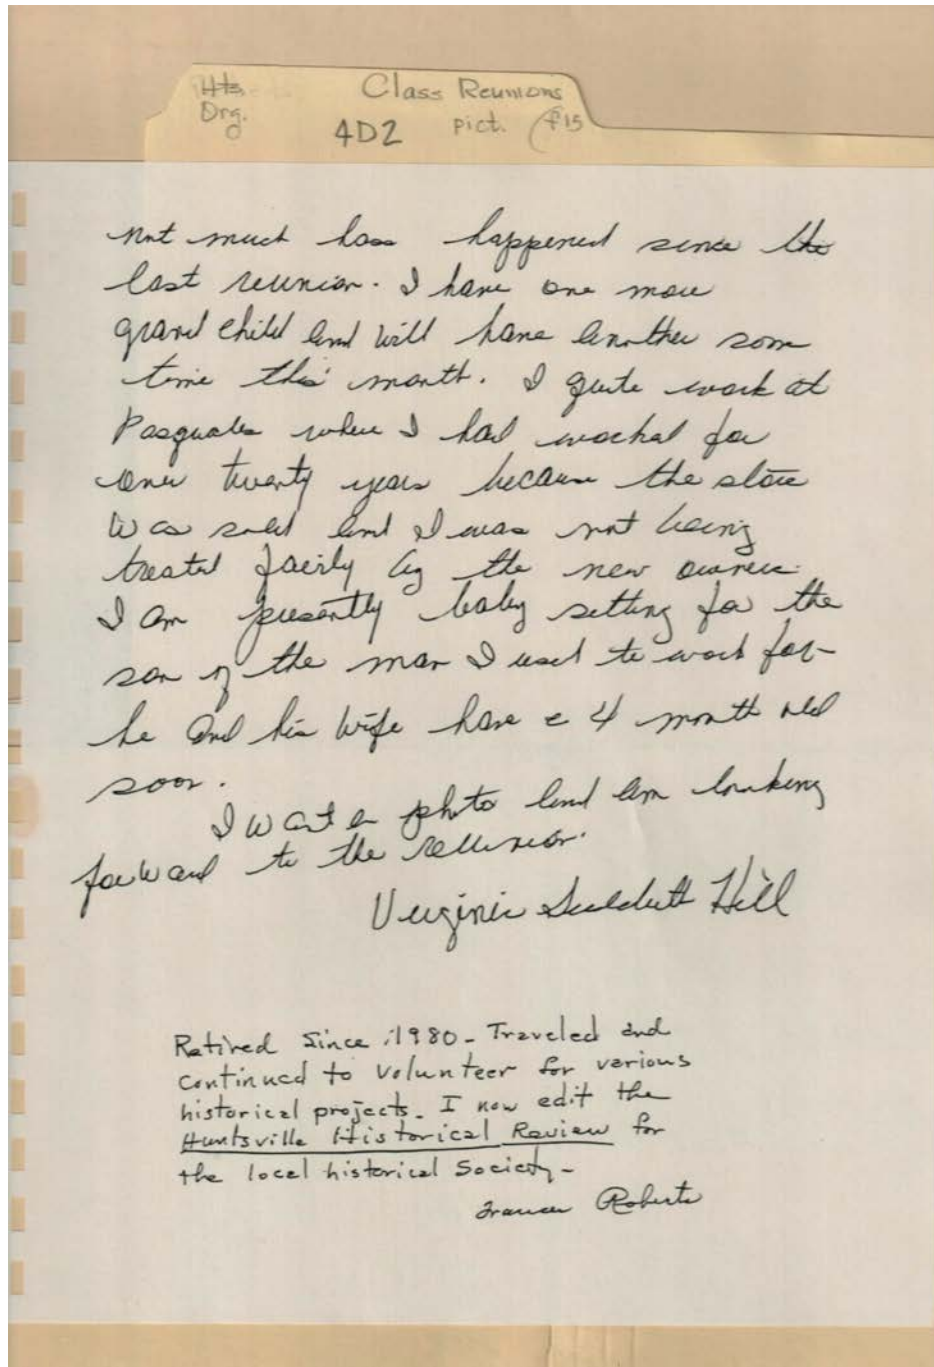 Hts. Class Reunions
Org. 4D2 pict. f15
not much has happened since the
last reunion. I have one more
grand child and will have another som
time this month. I quite work at
Pasquales where I had worked for
over twenty years because the store
was sold and I was not being
treated fairly by the new owner.
I am presently baby setting for the
son of the man I used to work for-
he and his wife have a 4 month old
soon.
I want a photo and am looking
forward to the reunion.
Virginia Sudduth Hill
Retired Since 1980 - Traveled and
continued to volunteer for various
historical projects. I now edit the
Huntsville Historical Review for
the local historical Society -
Frances Roberts